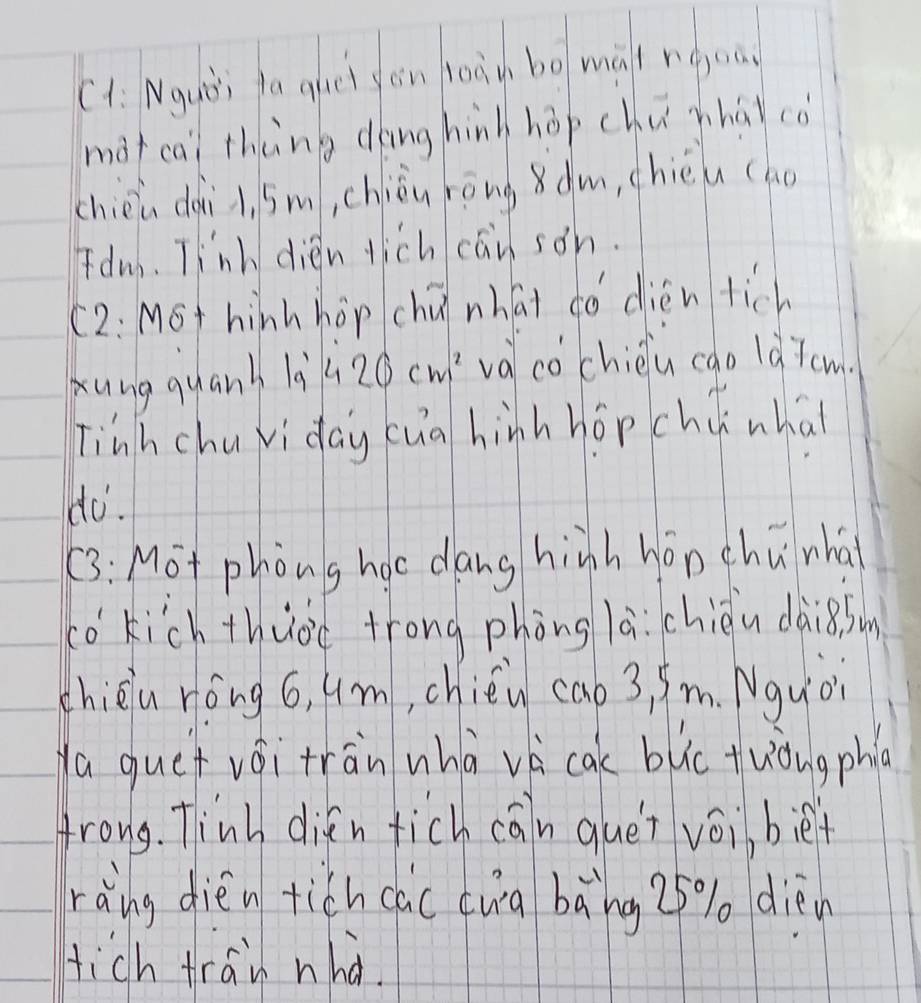 C1: Người ta quét sơn toàn bộ mặt ngoài
một cái thùng dạng hình hộp chữ nhật có
chiều dài 1,5m, chiều rộng 8dm, chiều cao
7dm. Tính diện tích cần sơn.
C2: Một hình hộp chữ nhật có diện tích
xung quanh là 420 cm² và có chiều cao là 7cm.
Tính chu vi đáy của hình hộp chữ nhật
đó.
C3: Một phòng học dạng hình hộp chữ nhật
có kích thước trong phòng là: chiều dài 8,5m
chiều rộng 6,4m, chiều cao 3,5m. Người
ta quét vôi trần nhà và các bức tường phía
trong. Tính diện tích cần quét vôi, biết
rằng diện tích các cửa bằng 25% diện
tích trần nhà.